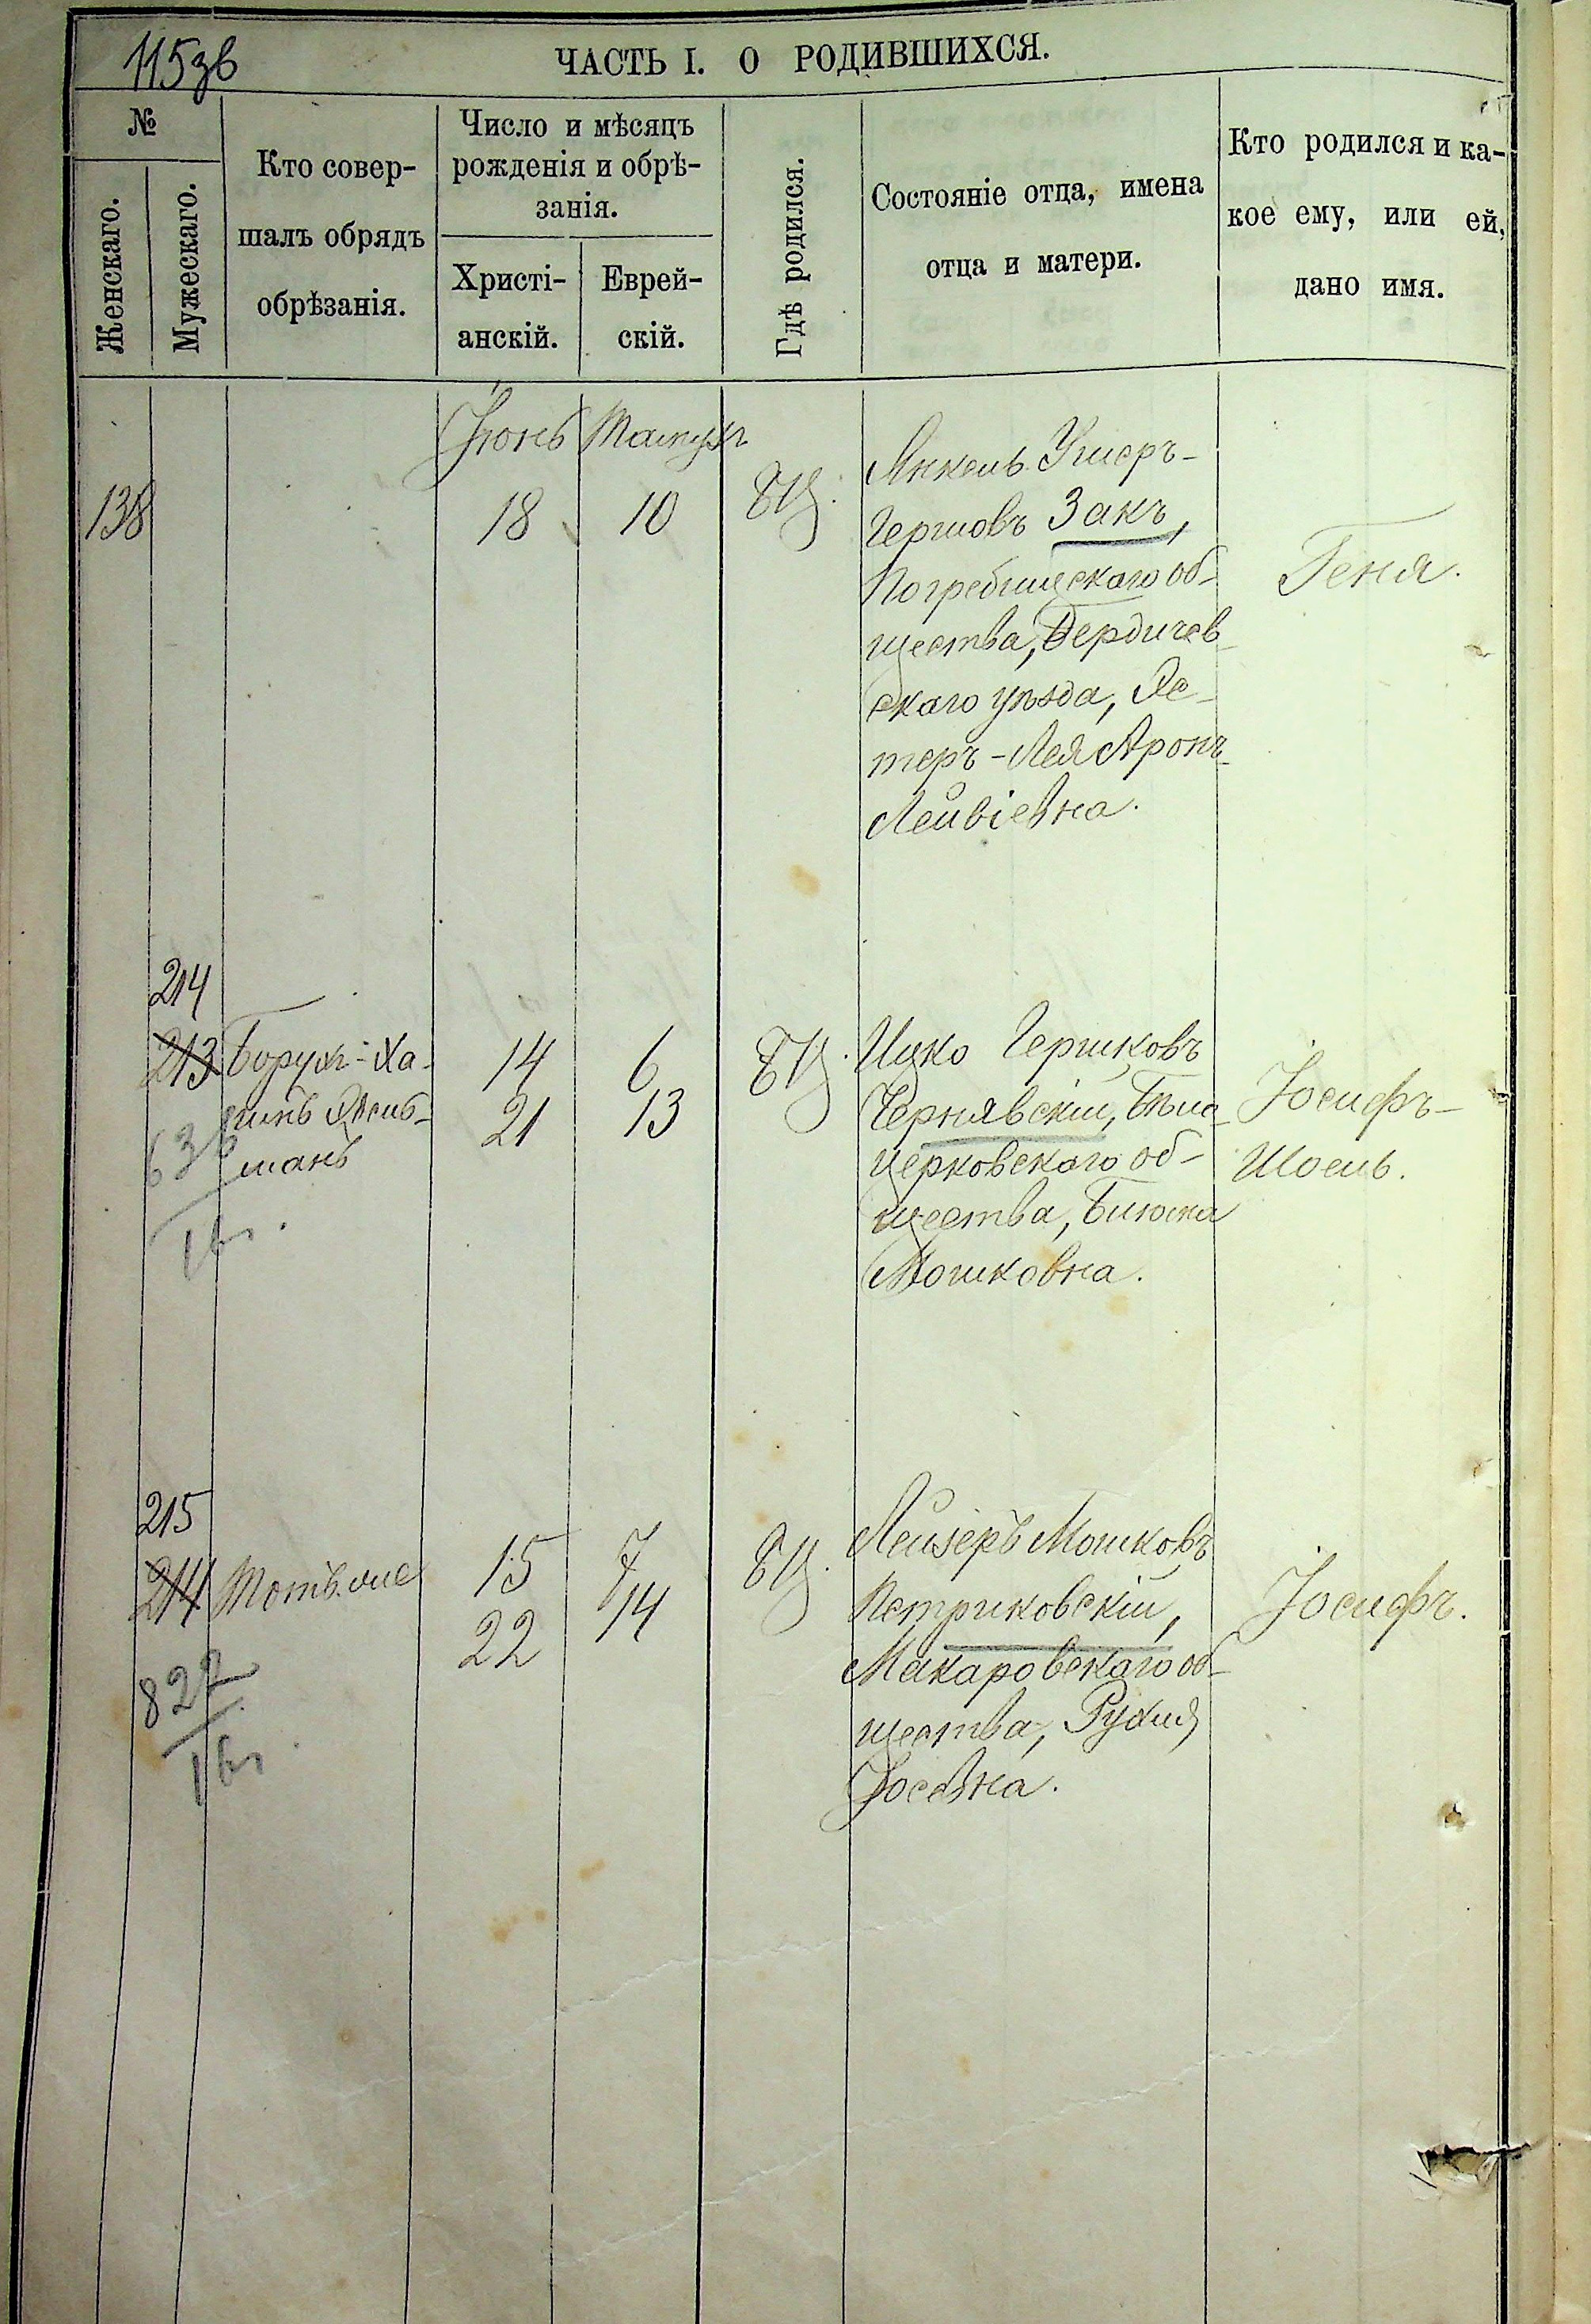 115зв
ЧАСТЬ I. О РОДИВШИХСЯ.
№
Женскаго.
Мужескаго.
Кто совер-
шалъ обрядъ
обрѣзанія.
Число и мѣсяцъ
рожденія и обрѣ-
занія.
Христі-
анскій.
Еврей-
скій.
Гдѣ родился.
Состояніе отца, имена
отца и матери.
Кто родился и ка-
кое ему, или ей,
дано имя.
Іюнь Тамузъ
138
18 10
БЦ.
Янкель Ушеръ-
Гершовъ Закъ,
Погребищскаго об-
щества, Бердичев-
скаго уѣзда, Эс-
теръ-Лея Аронъ-
Лейвіевна.
Геня.
214
213
Борухъ-Ха-
имъ
манъ
14 6
21 13
БЦ.
Ицко Гершковъ
Чернявскій, Бѣло-
церковскаго об-
щества, Блюма
Мошковна.
Іосифъ-
Шоель.
636
215
214
Тотъ-же
15 7
22 14
БЦ.
Лейзеръ Мошковъ
Петриковскій,
Макаровскаго об-
щества, Рухля
Іосевна.
Іосифъ.
827